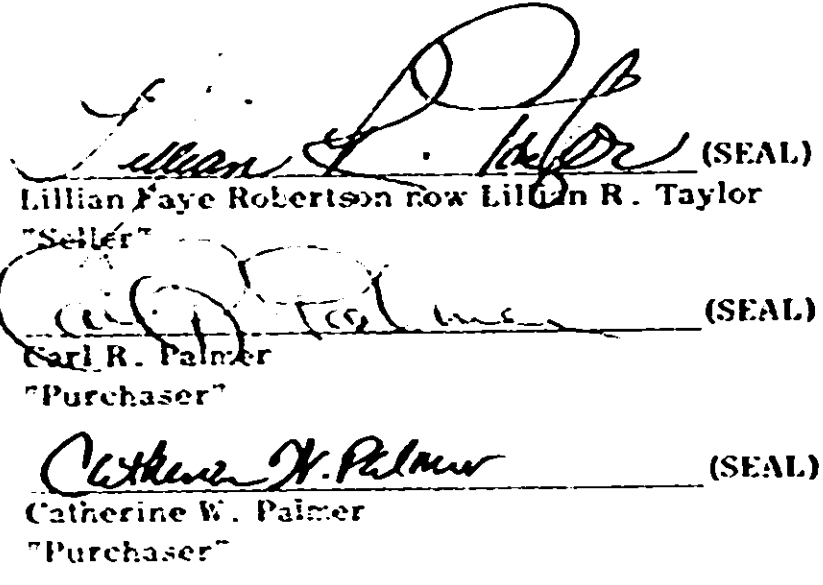 Lillian R. Taylor (SEAL)
Lillian Faye Robertson now Lillian R. Taylor
"Seller"
Carl R. Palmer (SEAL)
Carl R. Palmer
"Purchaser"
Catherine W. Palmer (SEAL)
Catherine W. Palmer
"Purchaser"